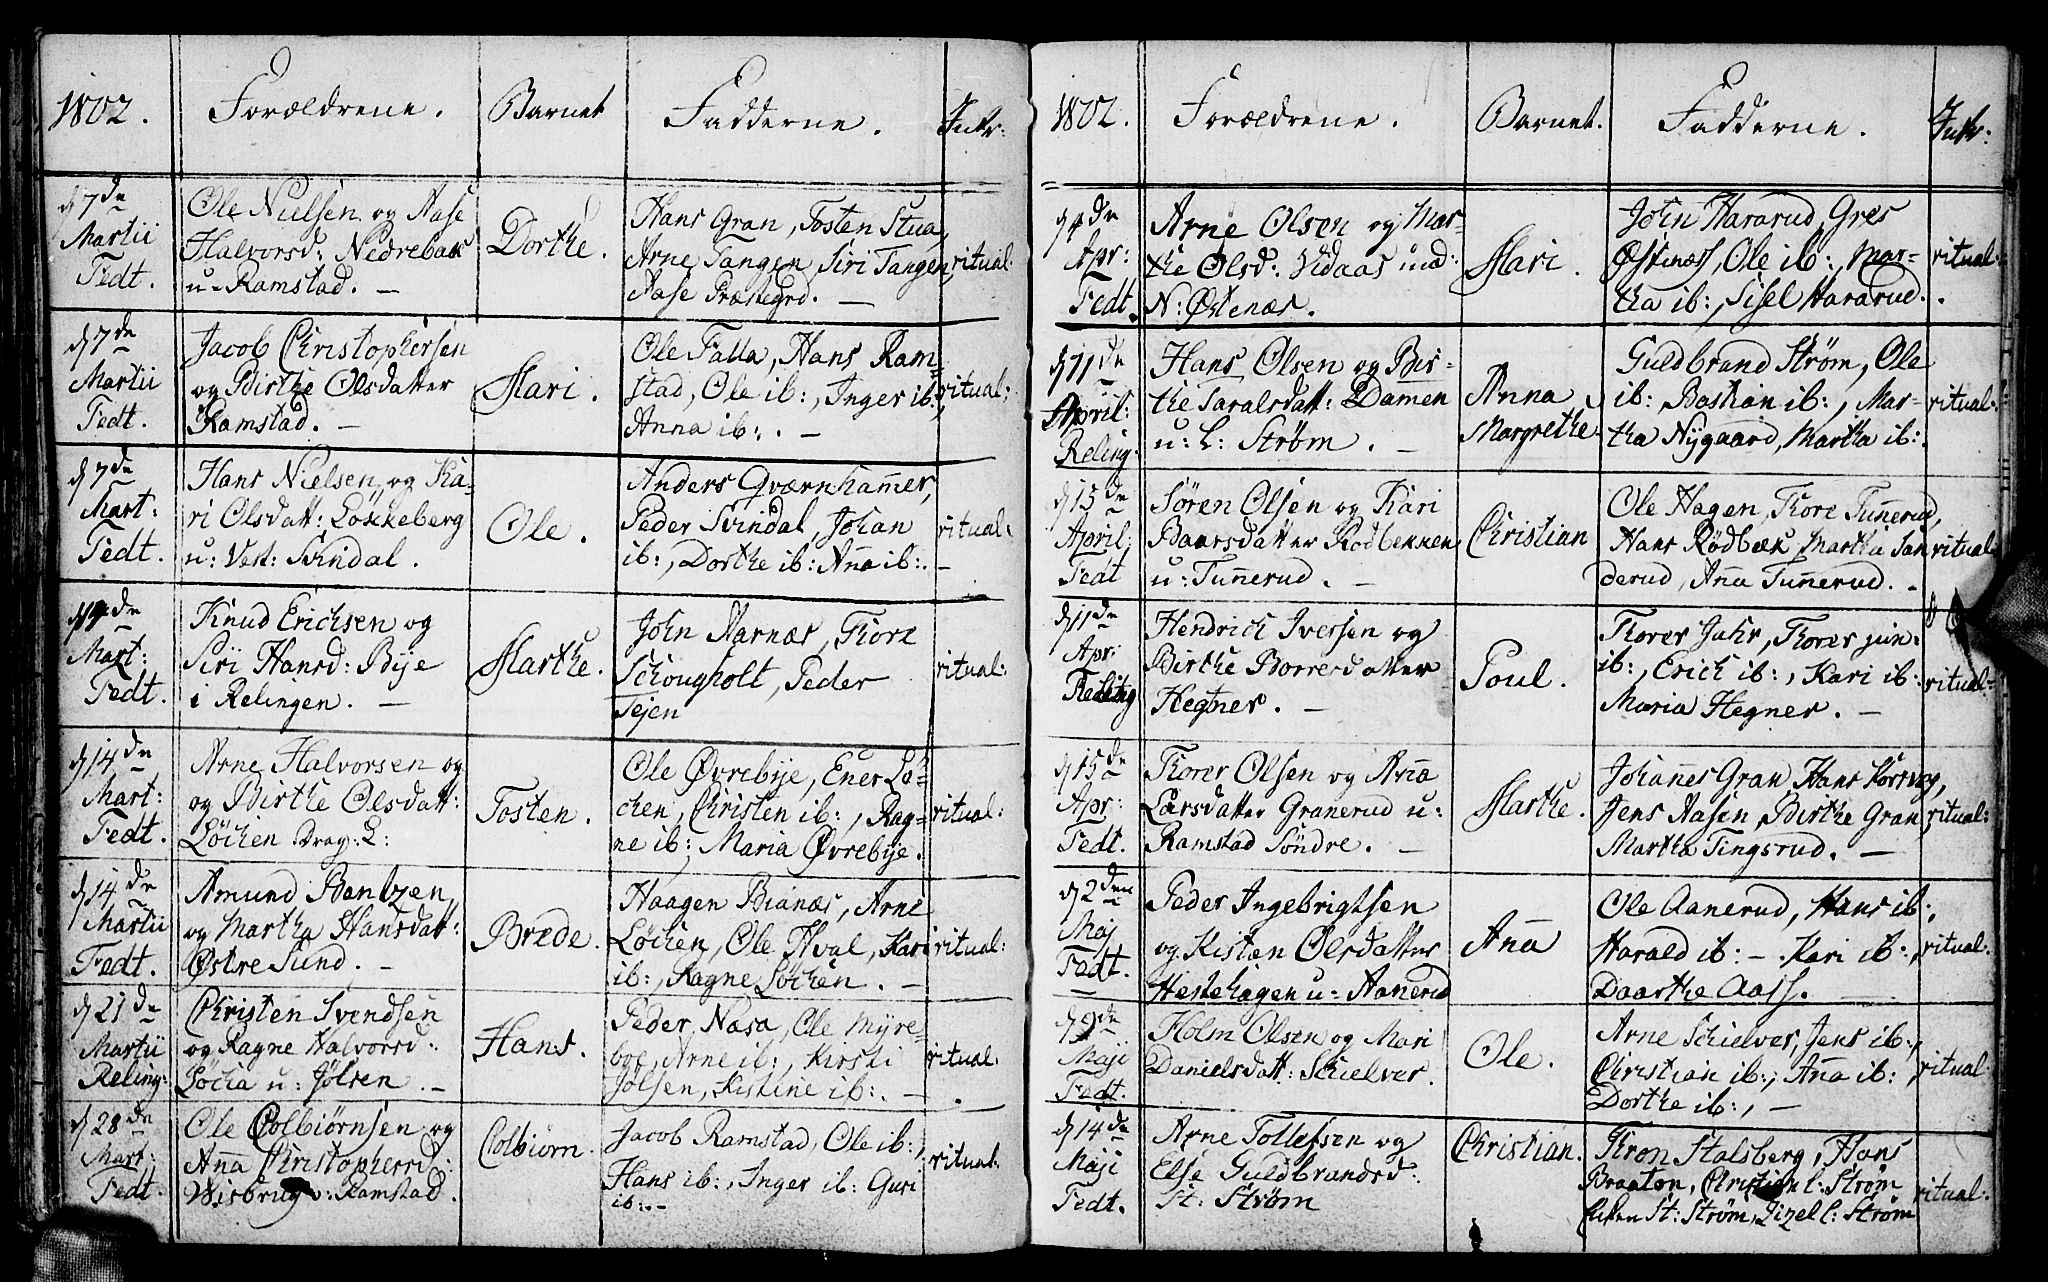 1802.
Forældrene.
Barnet
Fadderne.
Intr:
d 7de
Martii
Fedt.
Ole Nielsen og Aase
Halvorsd: Nedrebak
u. Ramstad. —
Dorthe.
Hans Gran, Tosten Stua,
Arne Tangen, Siri Tangen,
Aase Præstegrd. —
ritual:
d 7de
Martii
Fedt.
Jacob Christophersen
og Birthe Olsdatter
Ramstad. —
Mari.
Ole Falla, Hans Ram-
stad, Ole ib:, Inger ib:,
Anna ib:. —
ritual:
d 7de
Mart:
Fedt.
Hans Nielsen og Ka-
ri Olsdatt: Løkkeberg
u: Vest: Svindal.
Ole.
Anders Qværnhammer,
Peder Svindal, Johan
ib:, Dorthe ib: Anna ib:. —
ritual:
d 14de
Mart:
Fedt.
Knud Erichsen og
Siri Hansd: Bye
i Relingen. —
Marthe.
John Narnæs, Thore
Schougholt, Peder
Tejen
ritual:
d 14de
Mart:
Fedt.
Arne Halvorsen og
og Birthe Olsdatt:
Løchen Drag: L:
Tosten.
Ole Øvrebye, Ener Lø-
chen, Christen ib:, Rag-
ne ib:, Maria Øvrebye.
ritual:
d 14de
Martii
Fedt.
Amund Bentzen,
og Martha Hansdatt:
Østre Sund. —
Brede.
Haagen Bianæs, Arne
Løchen, Ole Hval, Kari
ib:, Ragne Løchen. —
ritual:
d 21de
Martii
Reling:
Christen Svendsen
og Ragne Halvorsd:
Løchia u: Jølsen. —
Hans.
Peder Nasa, Ole Myre-
boe, Arne ib:, Kirsti
Jølsen, Kistine ib:. —
ritual:
d 28de
Mart:
Fedt.
Ole Colbiørnsen og
Anna Christophersd:
Wisbrug u: Ramstad.
Colbiørn.
Jacob Ramstad, Ole ib:,
Hans ib:, Inger ib: Guri
ib:. —
ritual:
1802.
Forældrene.
Barnet.
Fadderne.
Intr:
d 4de
Apr:
Fedt.
Arne Olsen og Mar-
the Olsd: Vidaas und:
N: Østenæs.
Mari.
John Hararud, Gres
Østenæs, Ole ib:, Mar-
tha ib:, Sisel Hararud.
ritual:
d 11de
April:
Reling:
Hans Olsen og Bir-
the Taralsdatt: Damen
u: L: Strøm. —
Anna
Margrethe
Guldbrand Strøm, Ole
ib:, Bastian ib:, Mar-
tha Nygaard, Martha ib:.
ritual:
d 15de
April:
Fedt
Søren Olsen og Kari
Baarsdatter Rødbekken
u: Tunnerud. —
Christian
Ole Hagen, Thore Tunnerud,
Hans Rødbæk, Martha San
derud, Anna Tunnerud. —
ritual:
d 11de
Apr:
Reling
Hendrich Iversen og
Birthe Borresdatter
Hegner. —
Poul.
Thorer Jahr, Thorer jun:
ib:, Erich ib:, Kari ib:
Maria Hegner. —
ritual:
d 15de
Apr:
Fedt.
Thorer Olsen og Anna
Larsdatter Granerud u:
Ramstad Søndre. —
Marthe.
Johannes Gran, Hans Kortveg,
Jens Aasen, Birthe Gran,
Martha Tingsrud. —
ritual:
d 2den
Maj
Fedt.
Peder Ingebrigtsen
og Kistæn Olsdatter
Hestehagen u: Aanerud
Anna
Ole Aanerud, Hans ib:,
Harald ib: —. Kari ib:,
Daarthe Aass.
ritual:
d 9de
Maji
Fedt.
Holm Olsen og Mari
Danielsdatt: Schielver.
Ole.
Arne Schielver, Jens ib:,
Christian ib:, Anna ib:,
Dorthe ib:, —
ritual:
d 14de
Maji
Fedt.
Arne Tollefsen og
Else Guldbrandsd:
St: Strøm
Christian.
Thron Stalsberg, Hans
Braaton, Christian l: Strøm
St: Strøm, Lizel l: Strøm
ritual: